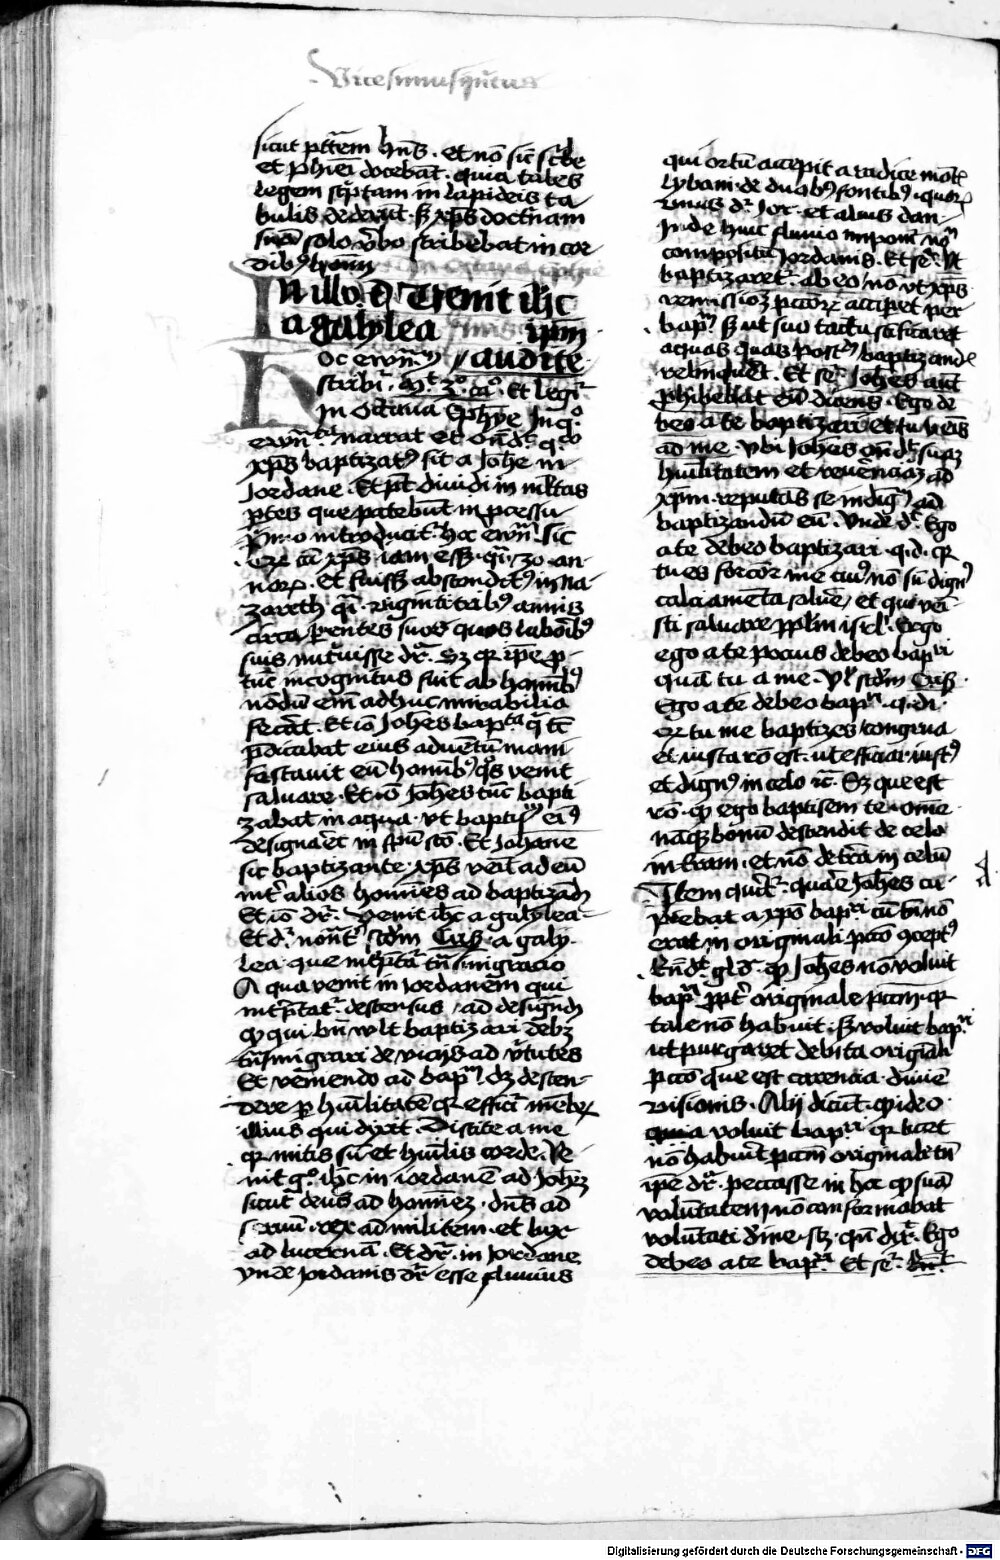 Vicesimusquintus
sicut potestatem habens. et non sicut scribe
et pharisei docebant. quia tales
legem scriptam in lapideis ta
bulis dederunt. sed xps doctrinam
suam solo verbo scribebat in cor
dibus hominum
In illo. t. Venit ihc
a galylea ipm
audite
Hoc ewm
scribitur. Mt. 3o. ca. Et legitur
in octava Ephye In quo
ewm narrat et ondit quo
xps baptizatus sit a Johe in
Jordane. Et pt dividi in multas
partes que patebunt in processu
primo introducitur hoc ewm. sic
xps iam esset quasi 30 an
norum. et fuisset absconditus in na
zareth quasi viginti tribus annis
circa parentes suos quos laboribus
suis nutrivisse dr. Sz qr ipse pro
tunc incognitus fuit ab hominibus
nondum enim adhuc mirabilia
fecerat. Et io Johes bapta qui tunc
predicabat eius adventum mani
festavit eum hominibus quos venit
salvare. Et io Johes tunc bapti
zabat in aqua. ut baptismum eius
designaret in spu sco. Et Johanne
sic baptizante xps venit ad eum
inter alios homines ad baptizandum
Et io dr. Venit ihc a galylea
Et dr notanter scdm Cris. a galy
lea que interpretatur transmigracio
A qua venit in Jordanem qui
interpretatur descensus. ad designandum
qr qui bn vult baptizari debz
transmigrari de viciis ad virtutes
Et veniendo ad bapm. dz descen
dere per humilitatem qr efficitur membrum
illius qui dixit. Discite a me
qr mitis sum et humilis corde. Ve
nit go. ihc in iordanem ad Johem
sicut deus ad hominem. dns ad
servum. rex ad militem. et lux
ad lucernam. Et dr. in Jordane
Unde Jordanis dr esse fluvius
qui ortum accepit a radice montis
lybani. de duobus fontibus. quorum
unus dr Jor. et alius dan
Inde huic fluvio imponitur nomen
compositum Jordanis. Et sequitur Ut
baptizaretur ab eo. non ut xps
remissionem peccatorum acciperet per
bapm. sed ut suo tactu sctificaret
aquas quas postea baptizandis
relinqueret. Et sequitur Johes autem
prohibebat eum dicens. Ego de
beo a te baptizari et tu venis
ad me. Ubi Johes ondit suam
humilitatem et reverenciam ad
xpm. reputans se indignum ad
baptizandum eum. Unde dr. Ego
a te debeo baptizari. q.d. qr
tu es forcior me cuius non sum dignus
calciamenta solvere, et qui veni
sti salvare pplm isrl. Ergo
ego a te pocius debeo bapri
quam tu a me. Vl scdm Cris.
Ego a te debeo bapri. q. di.
qr tu me baptizes congrua
et iusta ro est. ut efficiar iustus
et dignus in celo etc. Sz que est
ro. qr ego baptisem te. omne
namqz bonum descendit de celo
in terram. et non de terra in celum
Item queritur. quare Johes cu
piebat a xpo bapri cum tamen non
erat in originali pcco conceptus
Rndt glo. qr Johes non voluit
bapri propter originale pccm. qr
tale non habuit. sed voluit bapri
ut purgaret debita originali
pcco que est carencia divine
visionis. Alii dicunt. qr ideo
quia voluit bapri qr licet
non habuerit pccm originale tamen
ipse dr. peccasse in hoc qr suam
voluntatem non conformabat
voluntati divine. scz. quando dixit. Ego
debeo a te bapri. Et sequitur. Rndt